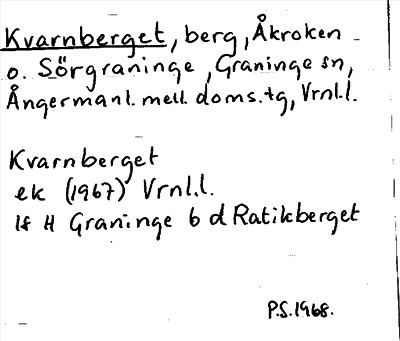 Kvarnberget, berg, Åkroken
o. Sörgraninge, Graninge sn,
Ångermanl. mell. doms.tg, Vrnl.l.
Kvarnberget
ek (1967) Vrnl.l.
lf H Graninge 6 d Ratikberget
P.S. 1968.